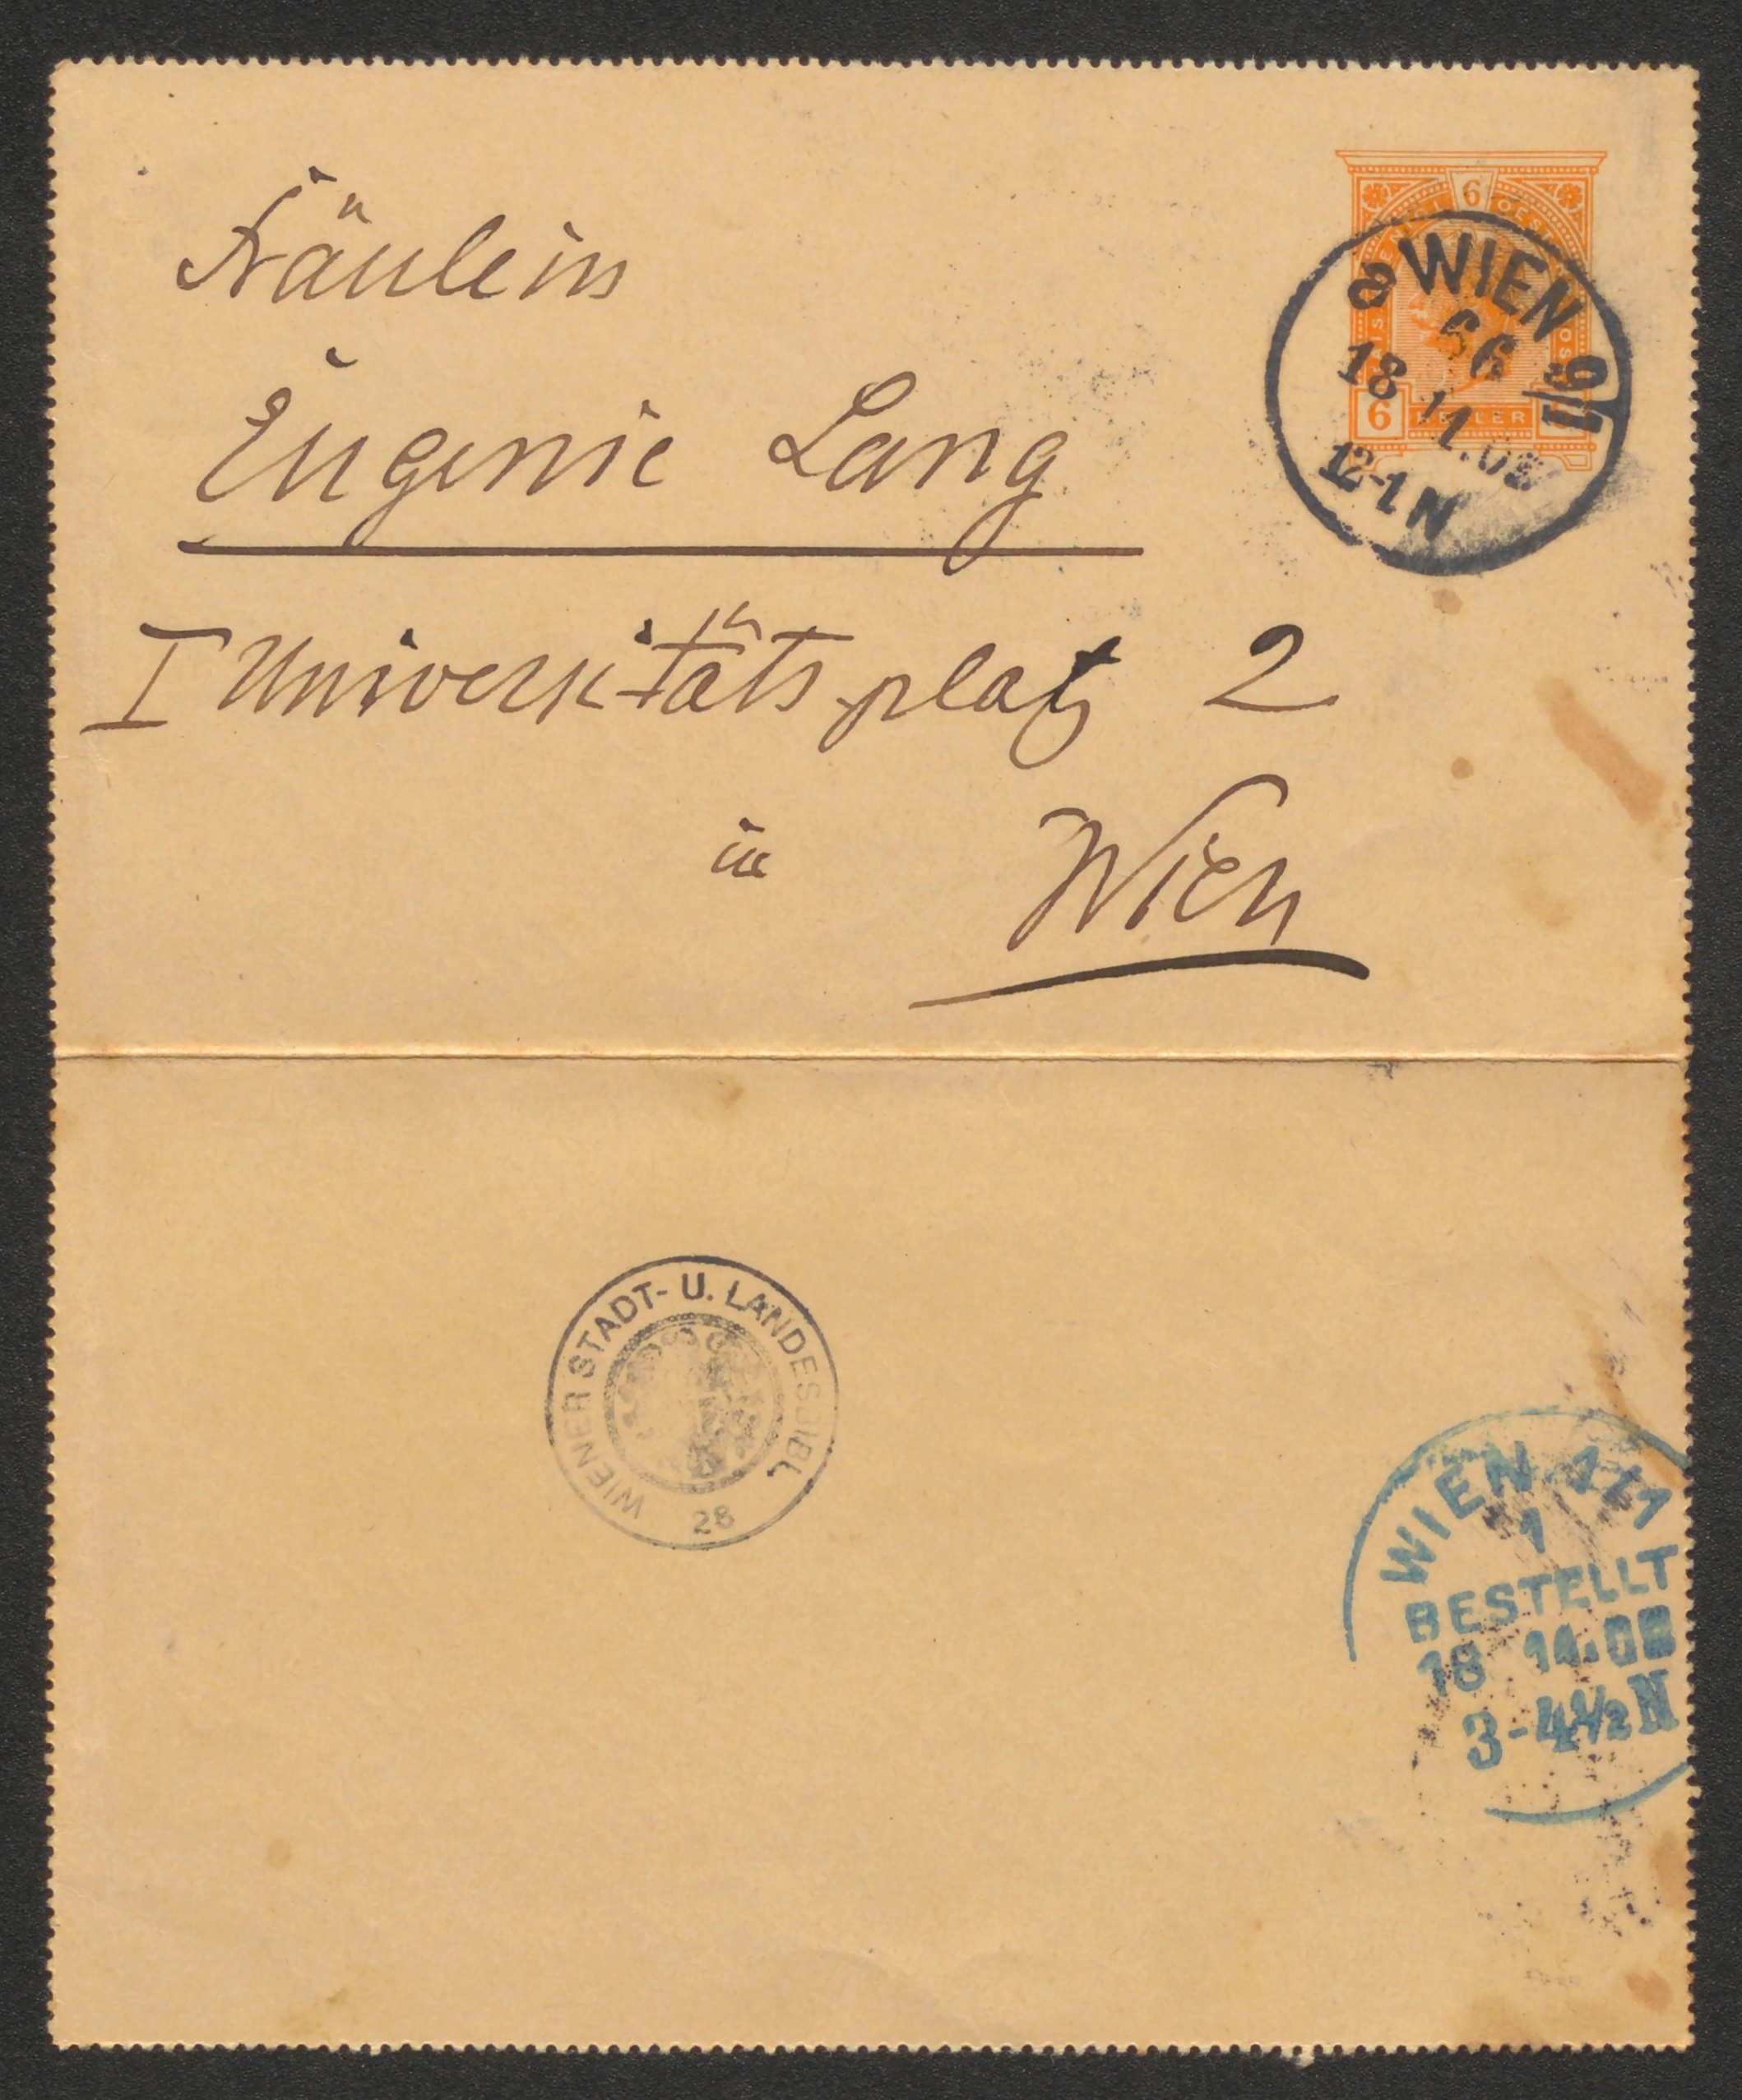 Fräulein
Eugenie Lang
I Universitätsplatz 2
in Wien
6
6
HELLER
a WIEN 9/1
66
18 11.02
12-1 N
WIENER STADT- U. LANDESBIBL
28
WIEN 1/1
1
BESTELLT
18 11.02
3-4½N